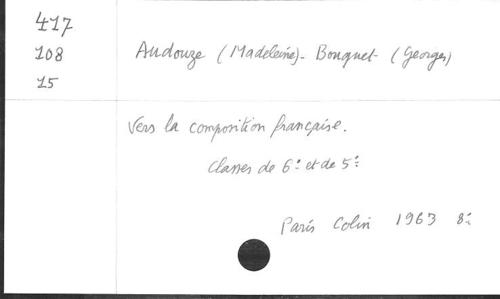 417
108
15
Audouze (Madeleine)- Bouquet (Georges)
Vers la composition française.
Classes de 6e et de 5e
Paris Colin 1963 8°